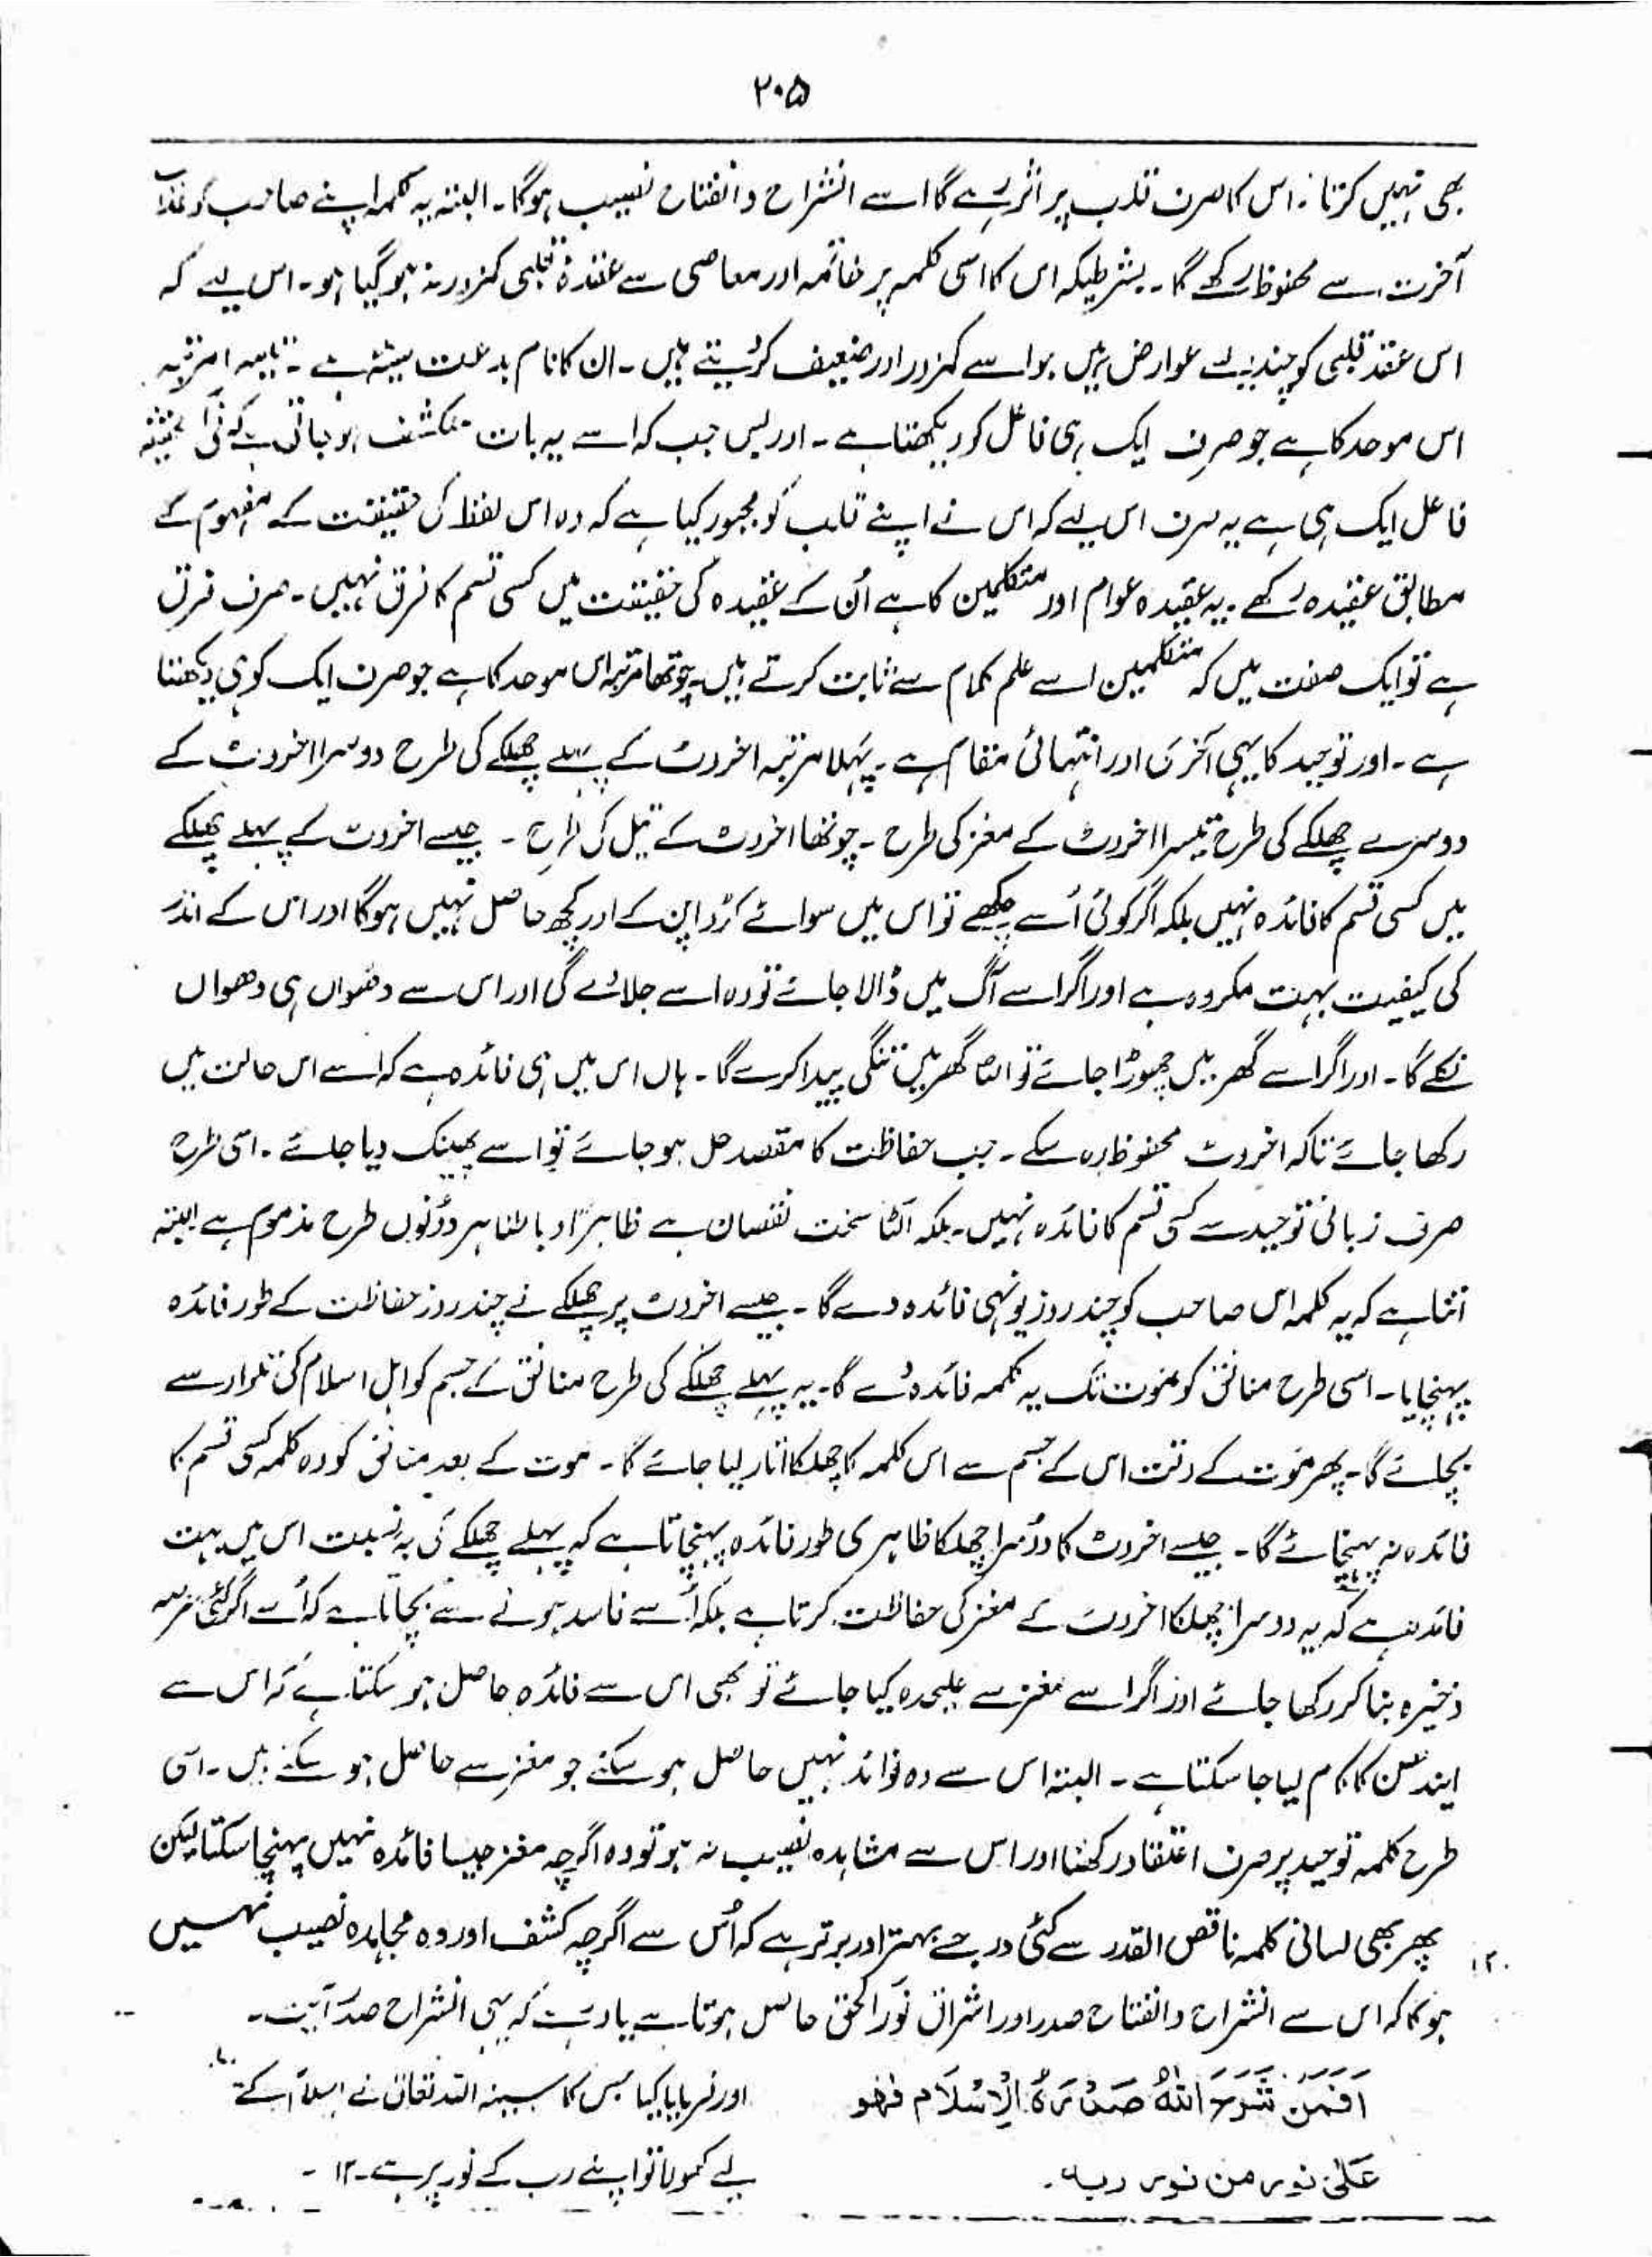 ۲۰۵
بھی نہیں کرتا۔ اس کا صرف قلب پر اثر رہے گا اسے انشراح و انفتاح نصیب ہوگا۔ البتہ یہ کلمہ اپنے صاحب کو عذاب
آخرت سے محفوظ رکھے گا۔ بشرطیکہ اس کا اسی کلمہ پر خاتمہ اور معاصی سے عقدۂ قلبی کمزور نہ ہو گیا ہو۔ اس لیے کہ
اس عقد قلبی کو چند ایسے عوارض ہیں جو اسے کمزور اور ضعیف کر دیتے ہیں۔ ان کا نام بدعت سیئہ ہے۔ تیسرا مرتبہ
اس موحد کا ہے جو صرف ایک ہی فاعل کو دیکھتا ہے۔ اور بس جب کہ اسے یہ بات منکشف ہو جاتی ہے کہ فی الحقیقت
فاعل ایک ہی ہے یہ صرف اس لیے کہ اس نے اپنے قلب کو مجبور کیا ہے کہ وہ اس لفظ کی حقیقت کے مفہوم کے
مطابق عقیدہ رکھے۔ یہ عقیدہ عوام اور متکلمین کا ہے اُن کے عقیدہ کی حقیقت میں کسی قسم کا فرق نہیں۔ صرف فرق
ہے تو ایک صفت میں کہ متکلمین اسے علم کلام سے ثابت کرتے ہیں۔ چوتھا مرتبہ اس موحد کا ہے جو صرف ایک کو ہی دیکھتا
ہے۔ اور توحید کا یہی آخری اور انتہائی مقام ہے۔ پہلا مرتبہ اخروٹ کے پہلے چھلکے کی طرح دوسرا اخروٹ کے
دوسرے چھلکے کی طرح تیسرا اخروٹ کے مغز کی طرح۔ چوتھا اخروٹ کے تیل کی طرح۔ جیسے اخروٹ کے پہلے چھلکے
میں کسی قسم کا فائدہ نہیں بلکہ اگر کوئی اُسے چکھے تو اس میں سوائے کڑواپن کے اور کچھ حاصل نہیں ہوگا اور اس کے اندر
کی کیفیت بہت مکروہ ہے اور اگر اسے آگ میں ڈالا جائے تو وہ اسے جلائے گی اور اس سے دھواں ہی دھواں
نکلے گا۔ اور اگر اسے گھر میں چھوڑا جائے تو الٹا گھر میں تنگی پیدا کرے گا۔ ہاں اس میں ہی فائدہ ہے کہ اسے اس حالت میں
رکھا جائے تاکہ اخروٹ محفوظ رہ سکے۔ جب حفاظت کا مقصد حل ہو جائے تو اسے پھینک دیا جائے۔ اسی طرح
صرف زبانی توحید سے کسی قسم کا فائدہ نہیں۔ بلکہ الٹا سخت نقصان ہے ظاہراً و باطناً ہر دونوں طرح مذموم ہے البتہ
اتنا ہے کہ یہ کلمہ اس صاحب کو چند روز یونہی فائدہ دے گا۔ جیسے اخروٹ پر چھلکے نے چند روز حفاظت کے طور فائدہ
پہنچایا۔ اسی طرح منافق کو موت تک یہ کلمہ فائدہ دے گا۔ یہ پہلے چھلکے کی طرح منافق کے جسم کو اہل اسلام کی تلوار سے
بچائے گا۔ پھر موت کے وقت اس کے جسم سے اس کلمہ کا چھلکا اتار لیا جائے گا۔ موت کے بعد منافق کو وہ کلمہ کسی قسم کا
فائدہ نہ پہنچائے گا۔ جیسے اخروٹ کا دوسرا چھلکا ظاہری طور فائدہ پہنچاتا ہے کہ پہلے چھلکے کی بہ نسبت اس میں بہت
فائدہ ہے کہ یہ دوسرا چھلکا اخروٹ کے مغز کی حفاظت کرتا ہے بلکہ اُسے فاسد ہونے سے بچاتا ہے کہ اُسے اگر کئی عرصہ
ذخیرہ بنا کر رکھا جائے اور اگر اسے مغز سے علیحدہ کیا جائے تو بھی اس سے فائدہ حاصل ہو سکتا ہے کہ اس سے
ایندھن کا کام لیا جا سکتا ہے۔ البتہ اس سے وہ فوائد نہیں حاصل ہو سکتے جو مغز سے حاصل ہو سکتے ہیں۔ اسی
طرح کلمہ توحید پر صرف اعتقاد رکھنا اور اس سے مشاہدہ نصیب نہ ہو تو وہ اگرچہ مغز جیسا فائدہ نہیں پہنچا سکتا لیکن
پھر بھی لسانی کلمہ ناقص القدر سے کئی درجے بہتر اور برتر ہے کہ اُس سے اگرچہ کشف اور وہ مجاہدہ نصیب نہیں
ہوگا کہ اس سے انشراح و انفتاح صدر اور اشراق نور الحق حاصل ہوتا ہے یاد رہے کہ یہی انشراح صدر آیت۔
اَفَمَنْ شَرَحَ اللّٰهُ صَدْرَهٗ لِلْاِسْلَامِ فهو اور فرمایا کیا جس کا سینہ اللہ تعالیٰ نے اسلام کے
عَلٰی نور من نور ربه۔ لیے کھولا تو اپنے رب کے نور پر ہے۔ ۱۲۔